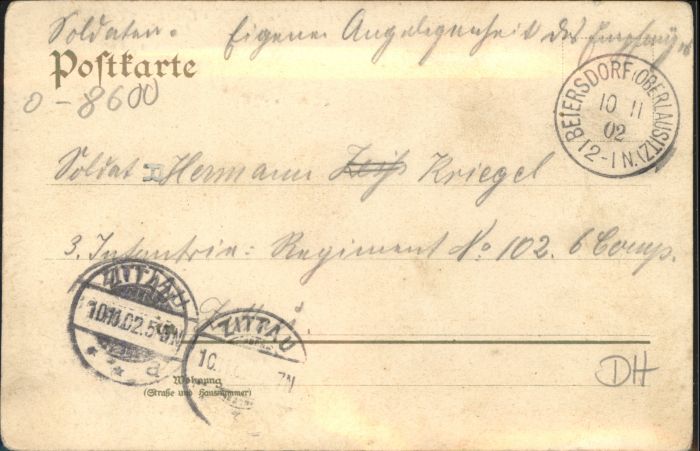 Soldaten. Eigene Angelegenheit des Empfängers
Postkarte
0-8600
BEIERSDORF (OBERLAUSITZ)
10 11
02
12-1 N.
Soldat Hermann Kriegel
3. Infantrie: Regiment No 102. 6 Comp.
ZITTAU
10.11.02.5-6N
* * a
ZITTAU
10.
7N
Wohnung
(Straße und Hausnummer)
DH